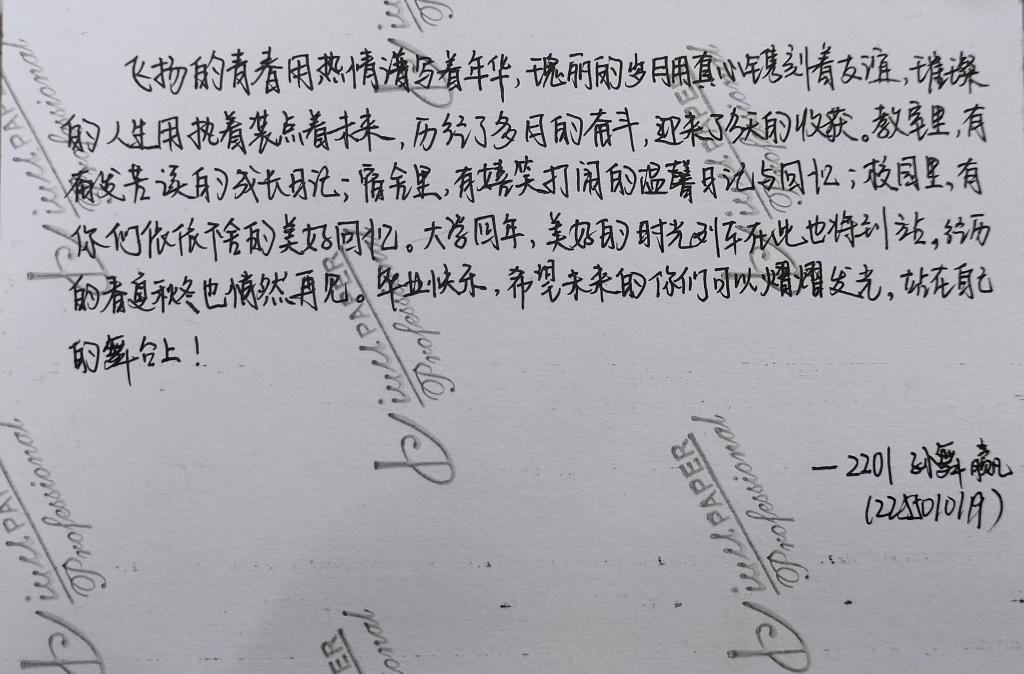 飞扬的青春用热情谱写着年华，瑰丽的岁月用真心镌刻着友谊，璀璨
的人生用执着装点着未来，历经了多月的奋斗，迎来了今天的收获。教室里，有
奋发苦读的成长日记；宿舍里，有嬉笑打闹的温馨日记与回忆；校园里，有
你们依依不舍的美好回忆。大学四年，美好的时光列车在此也将到站。经历
的春夏秋冬也悄然再见。毕业快乐，希望未来的你们可以熠熠发光，站在自己
的舞台上！
—2201 舞赢
(2255010119)
PAPER
Professional